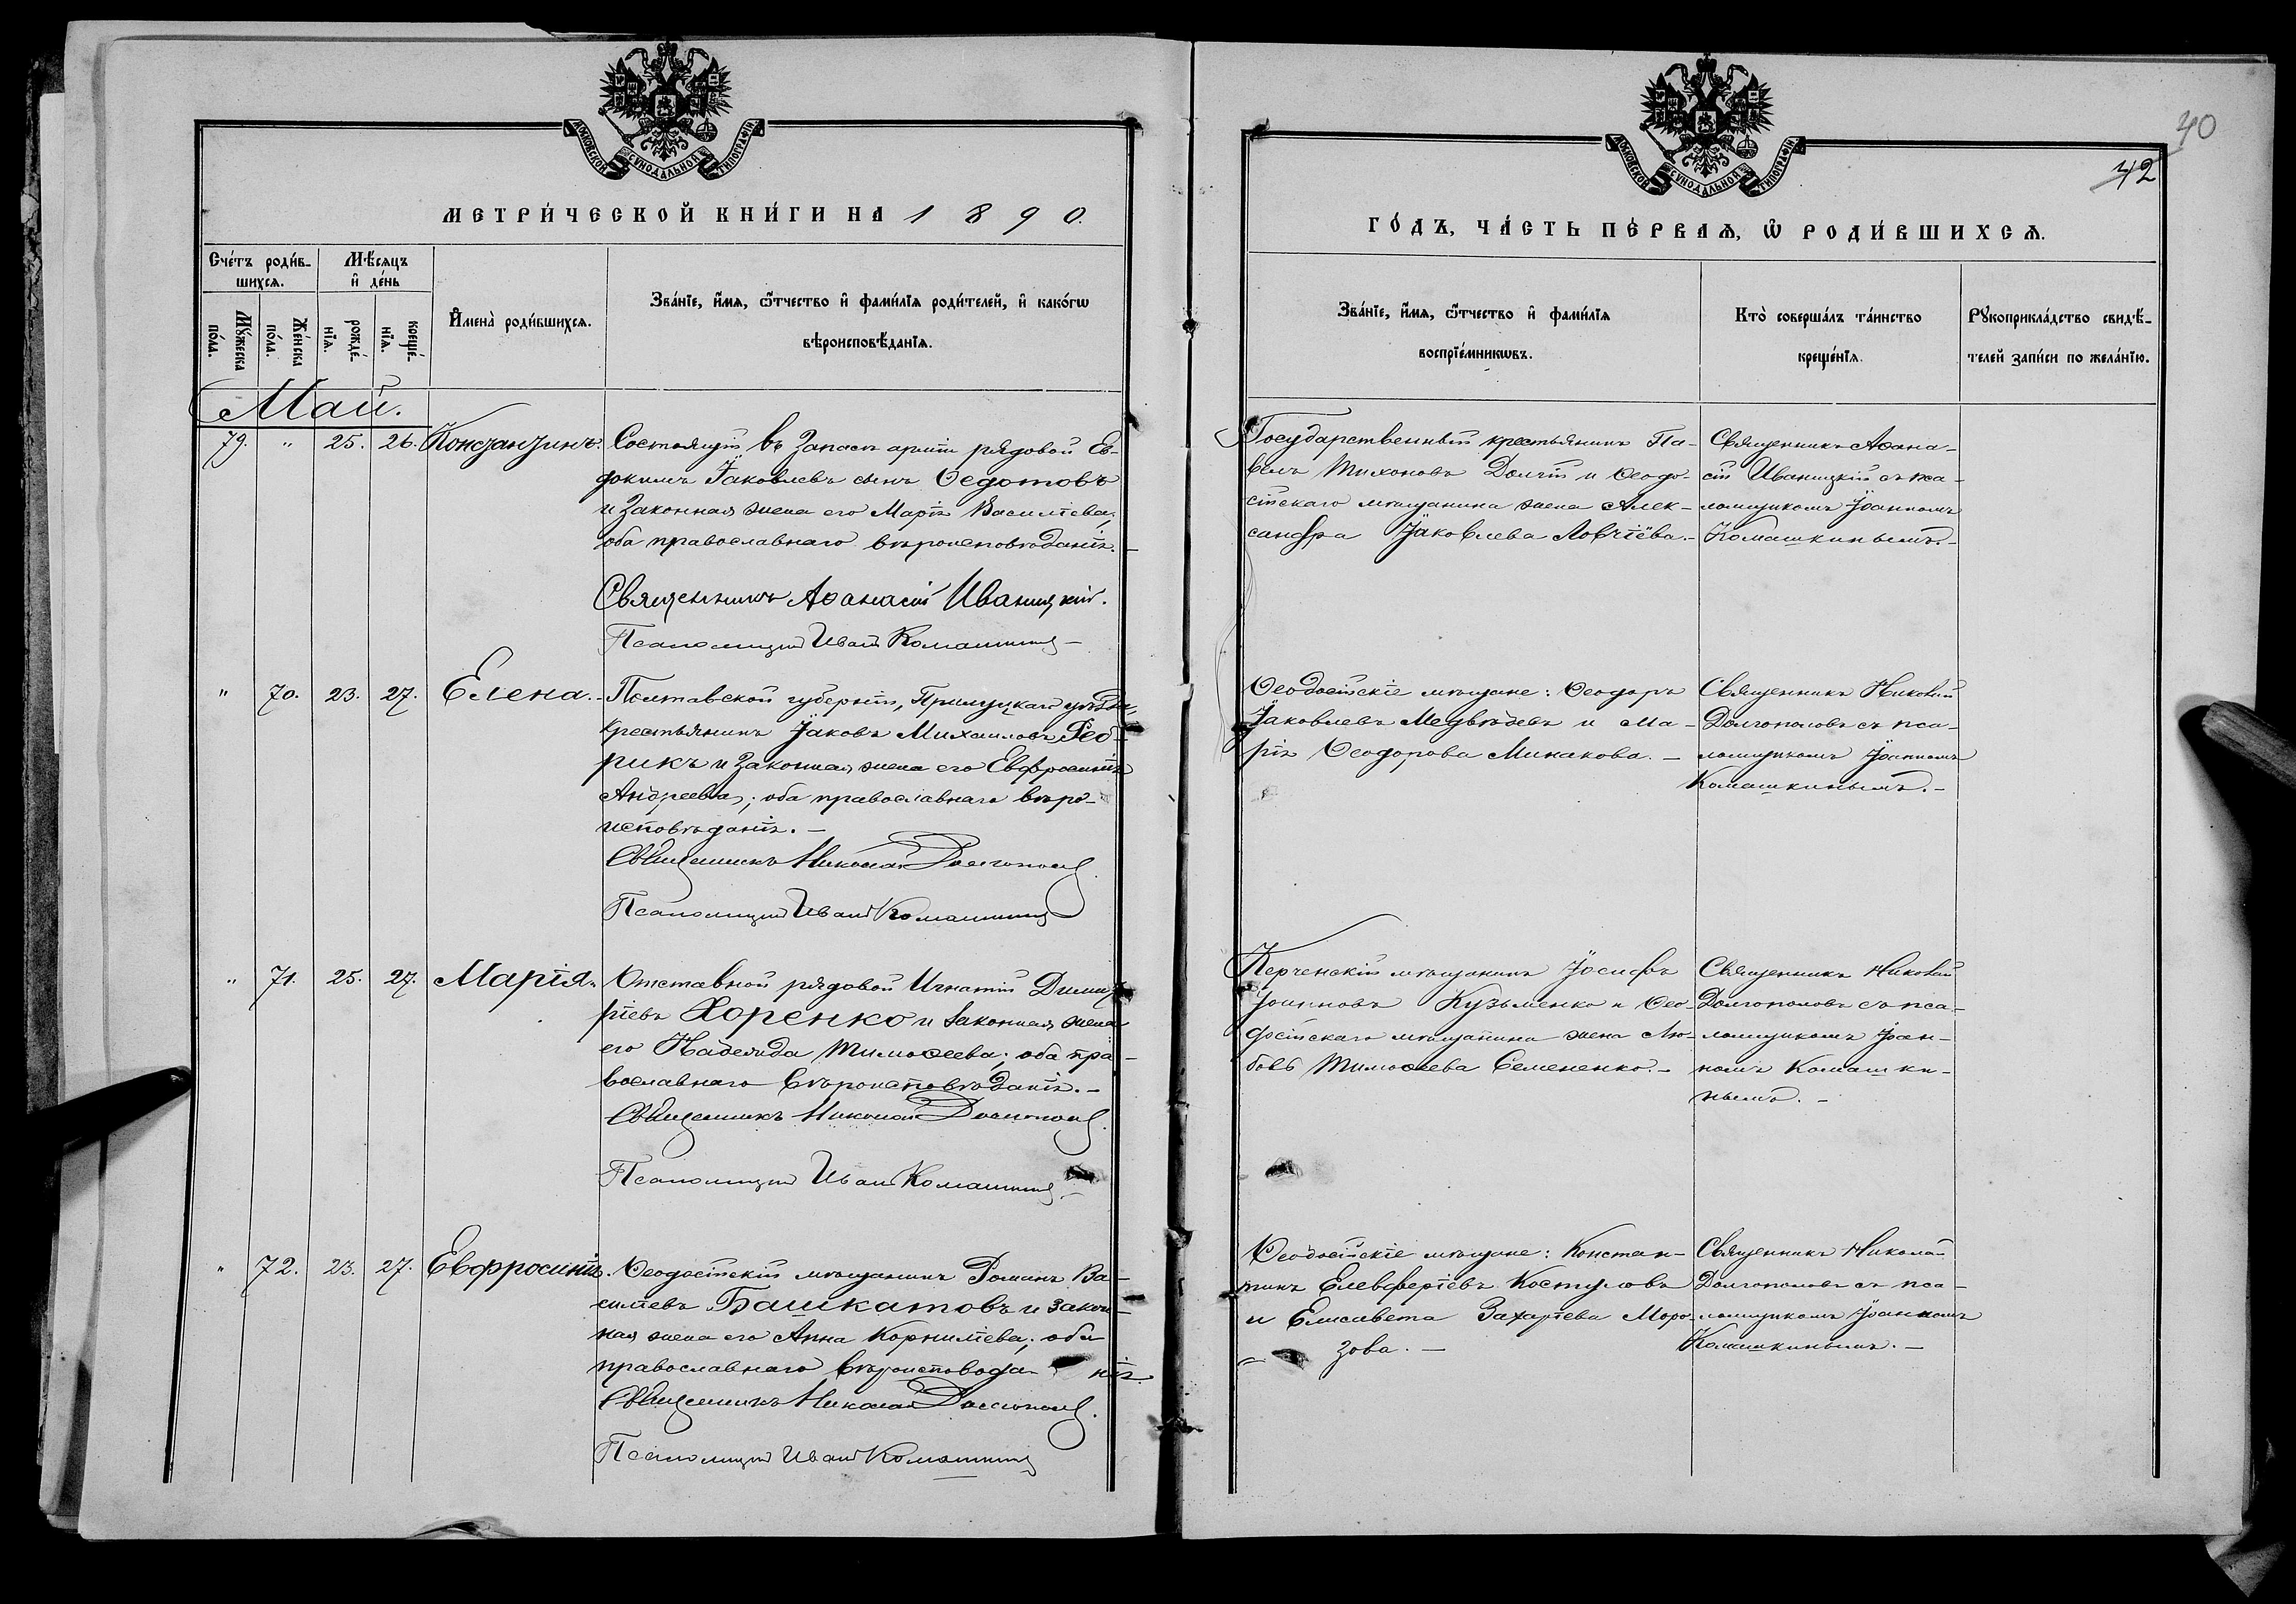 МОСКОВСКОЙ СѴНОДАЛЬНОЙ ТИПОГРАФІИ
МЕТРИ́ЧЕСКОЙ КНИ́ГИ НА 1890.
Сче́тъ роди́в-
шихсѧ.
Мѣ́сѧцъ
и҆ де́нь
Мꙋ́жеска
по́ла.
Же́нска
по́ла.
рожде́-
нїѧ.
креще́-
нїѧ.
И҆мена̀ роди́вшихсѧ.
Зва́нїе, и҆́мѧ, ѻ҆́тчество и҆ фами́лїѧ роди́телей, и҆ како́гѡ
вѣроисповѣ́данїѧ.
Май.
79. " 25. 26. Константинъ.
Состоящій въ запасѣ арміи рядовой Ев-
докимъ Іаковлевъ сынъ Ѳедотовъ
и законная жена его Марія Василіева;
оба православнаго вѣроисповѣданія.-
Священникъ Аѳанасій Иваницкій.
Псаломщикъ Иванъ Комашкинъ
" 70. 23. 27. Елена.
Полтавской губерніи, Прилуцкаго уѣзда,
крестьянинъ Іаковъ Михаиловъ Реб-
рикъ и законная жена его Евфросинія
Андреева; оба православнаго вѣро-
исповѣданія. -
Священникъ Николай Долгополовъ.
Псаломщикъ Иванъ Комашкинъ
" 71. 25. 27. Марія.
Отставной рядовой Игнатій Димит-
ріевъ Хоренко и законная жена
его Надежда Тимоѳеева; оба пра-
вославнаго вѣроисповѣданія. -
Священникъ Николай Долгополовъ.
Псаломщикъ Иванъ Комашкинъ
" 72. 23. 27. Евфросинія.
Ѳеодосійскій мѣщанинъ Романъ Ва-
силіевъ Башкатовъ и закон-
ная жена его Анна Корниліева; оба
православнаго вѣроисповѣда- нія.
Священникъ Николай Долгополовъ.
Псаломщикъ Иванъ Комашкинъ
МОСКОВСКОЙ СѴНОДАЛЬНОЙ ТИПОГРАФІИ
40
42
ГО́ДЪ, ЧА́СТЬ ПЕ́РВАѦ, Ѡ҆ РОДИ́ВШИХСѦ.
Зва́нїе, и҆́мѧ, ѻ҆́тчество и҆ фами́лїѧ
воспрїе́мникѡвъ.
Кто̀ соверша́лъ та́инство
креще́нїѧ.
Рꙋкоприкла́дство свидѣ́-
телей за́писи по жела́нїю.
Государственный крестьянинъ Па-
велъ Тихоновъ Долгій и Ѳеодо-
сійскаго мѣщанина жена Алек-
сандра Іаковлева Ловчіева.-
Священникъ Аѳана-
сій Иваницкій съ пса-
ломщикомъ Іоанномъ
Комашкинымъ.-
Ѳеодосійскіе мѣщане: Ѳеодоръ
Іаковлевъ Медвѣдевъ и Ма-
рія Ѳеодорова Минакова. -
Священникъ Николай
Долгополовъ съ пса-
ломщикомъ Іоанномъ
Комашкинымъ.-
Керченскій мѣщанинъ Іосифъ
Іоанновъ Кузьменко и Ѳео-
досійскаго мѣщанина жена Лю-
бовь Тимоѳеева Семененко. -
Священникъ Николай
Долгополовъ съ пса-
ломщикомъ Іоан-
номъ Комашки-
нымъ. -
Ѳеодосійскіе мѣщане: Констан-
тинъ Елевферіевъ Костуловъ
и Елисавета Захаріева Моро-
зова. -
Священникъ Николай
Долгополовъ съ пса-
ломщикомъ Іоанномъ
Комашкинымъ. -